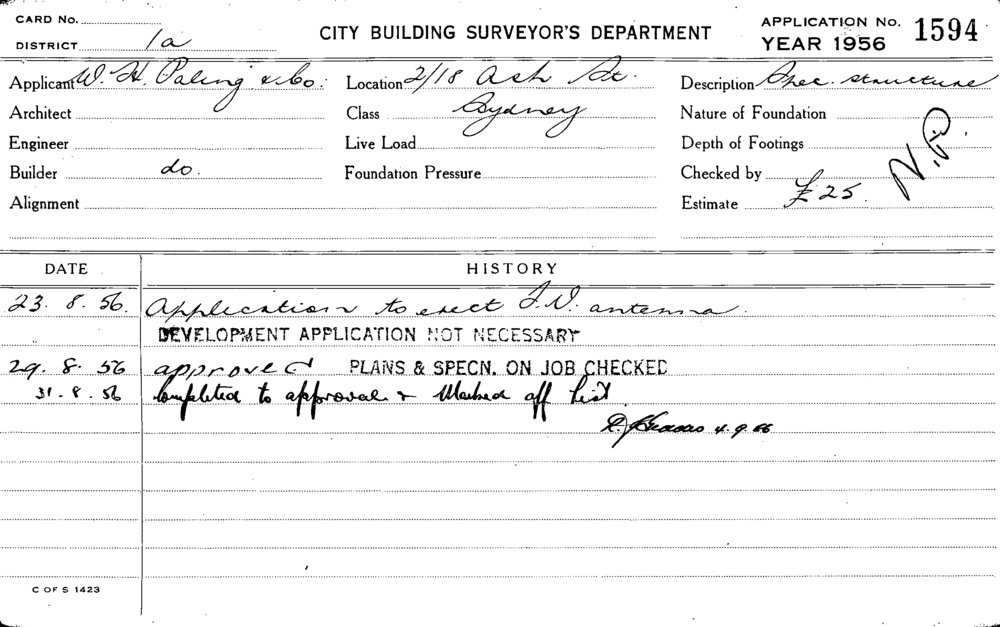 CARD No.
DISTRICT 1a
CITY BUILDING SURVEYOR'S DEPARTMENT
APPLICATION No. 1594
YEAR 1956
Applicant W. H. Paling & Co. Location 2/18 Ash St. Description Spec. structure
Architect Class Sydney Nature of Foundation
Engineer Live Load Depth of Footings
Builder do. Foundation Pressure Checked by
Alignment Estimate £25.
DATE HISTORY
23. 8. 56. Application to erect T.V. antenna.
DEVELOPMENT APPLICATION NOT NECESSARY
29. 8. 56 approved PLANS & SPECN. ON JOB CHECKED
31. 8. 56 Completed to approval & Marked off list
4. 9. 56
C OF S 1423